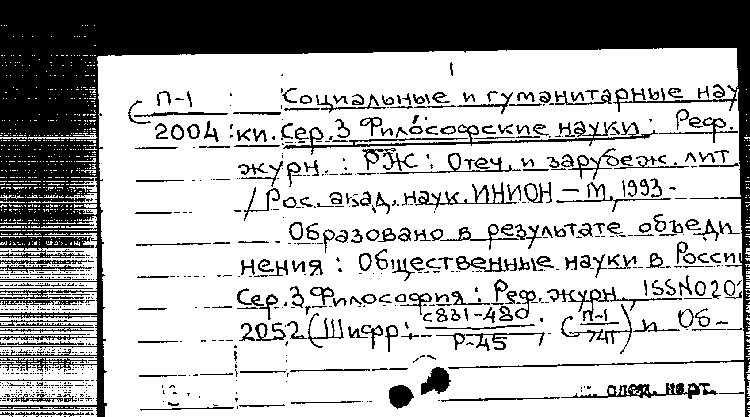 1
С П-1 Социальные и гуманитарные нау
2004 ки. Сер. 3, Философские науки: Реф.
журн. : РЖ : Отеч. и зарубеж. лит
/ Рос. акад. наук. ИНИОН – М, 1993-
Образовано в результате объеди
нения : Общественные науки в России
Сер. 3, Философия : Реф. журн., ISSN 0202
2052 (Шифр: с831-480 / Р-45 ; С П-1) и Об-
след. карт.